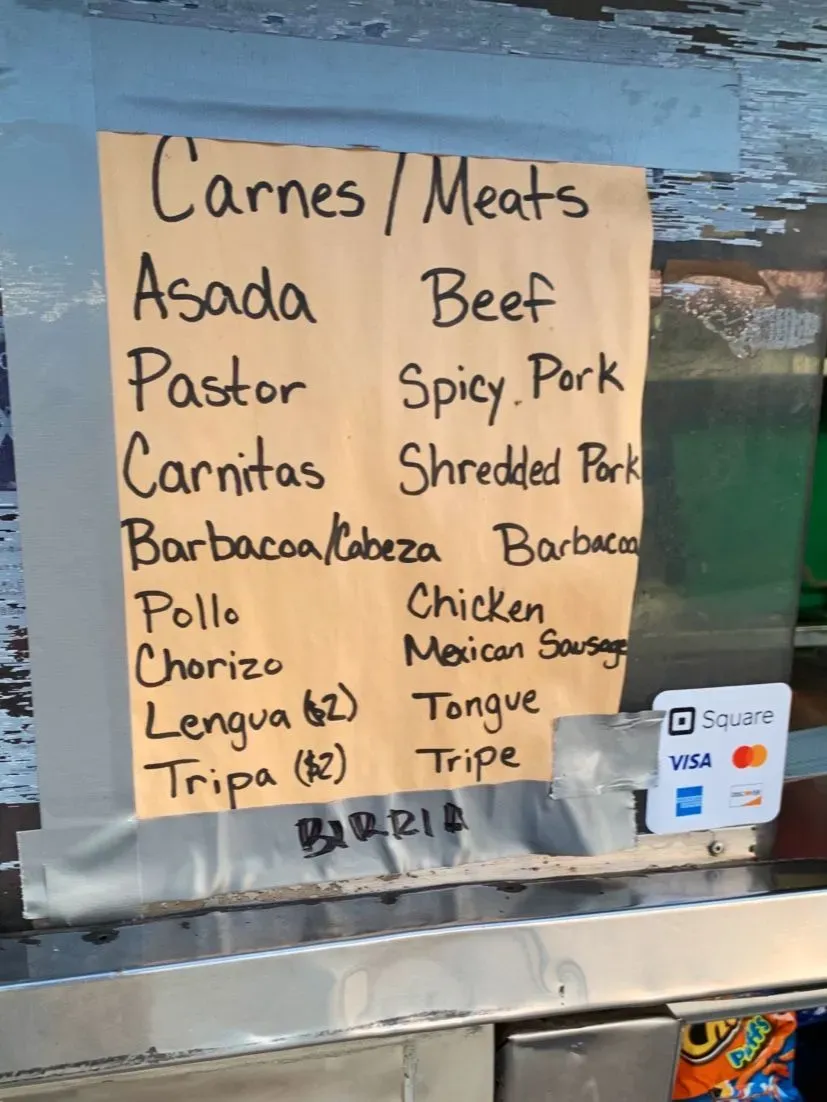 Carnes / Meats
Asada Beef
Pastor Spicy Pork
Carnitas Shredded Pork
Barbacoa/Cabeza Barbacoa
Pollo Chicken
Chorizo Mexican Sausage
Lengua ($2) Tongue
Tripa ($2) Tripe
BIRRIA
Square
VISA
DISCOVER
Puffs